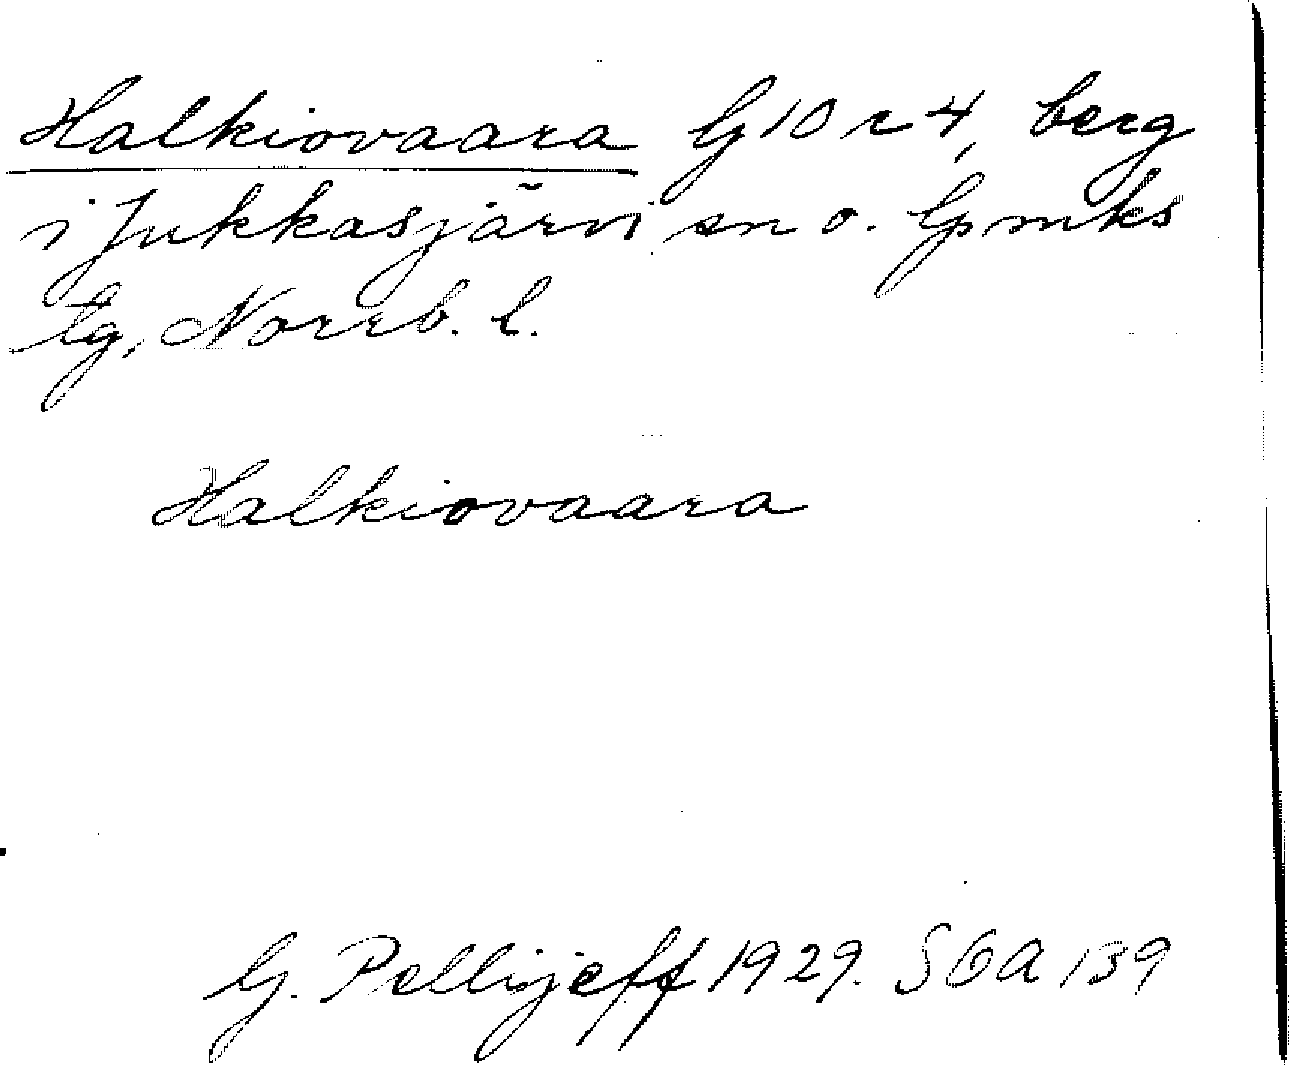 Halkiovaara G 10 r 4, berg
i Jukkasjärvi sn o. Lpmks
tg, Norrb. l.
Halkiovaara
G. Pellijeff 1929. SOA 139